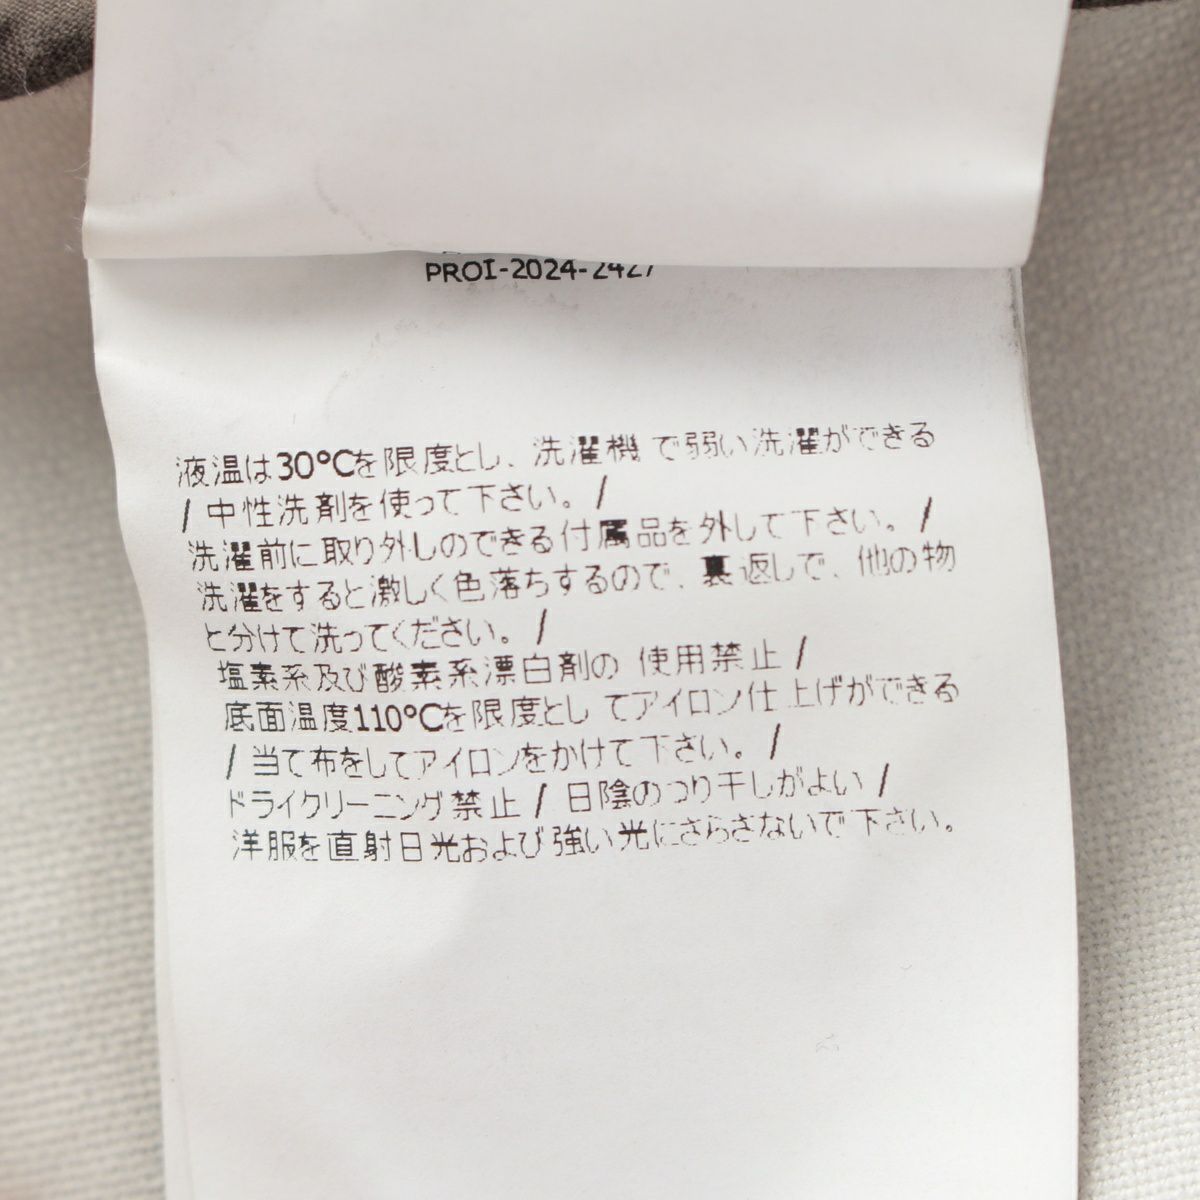 PROI-2024-2427
液温は30°Cを限度とし、洗濯機 で弱い洗濯ができる
/ 中性洗剤を使って下さい。 /
洗濯前に取り外しのできる付属品を外して下さい。 /
洗濯をすると激しく色落ちするので、裏返しで、他の物
と分けて洗ってください。 /
塩素系及び酸素系漂白剤の 使用禁止 /
底面温度110°Cを限度とし てアイロン仕上げができる
/ 当て布をしてアイロンをかけて下さい。 /
ドライクリーニング禁止 / 日陰のつり干しがよい /
洋服を直射日光および強い光にさらさないで下さい。